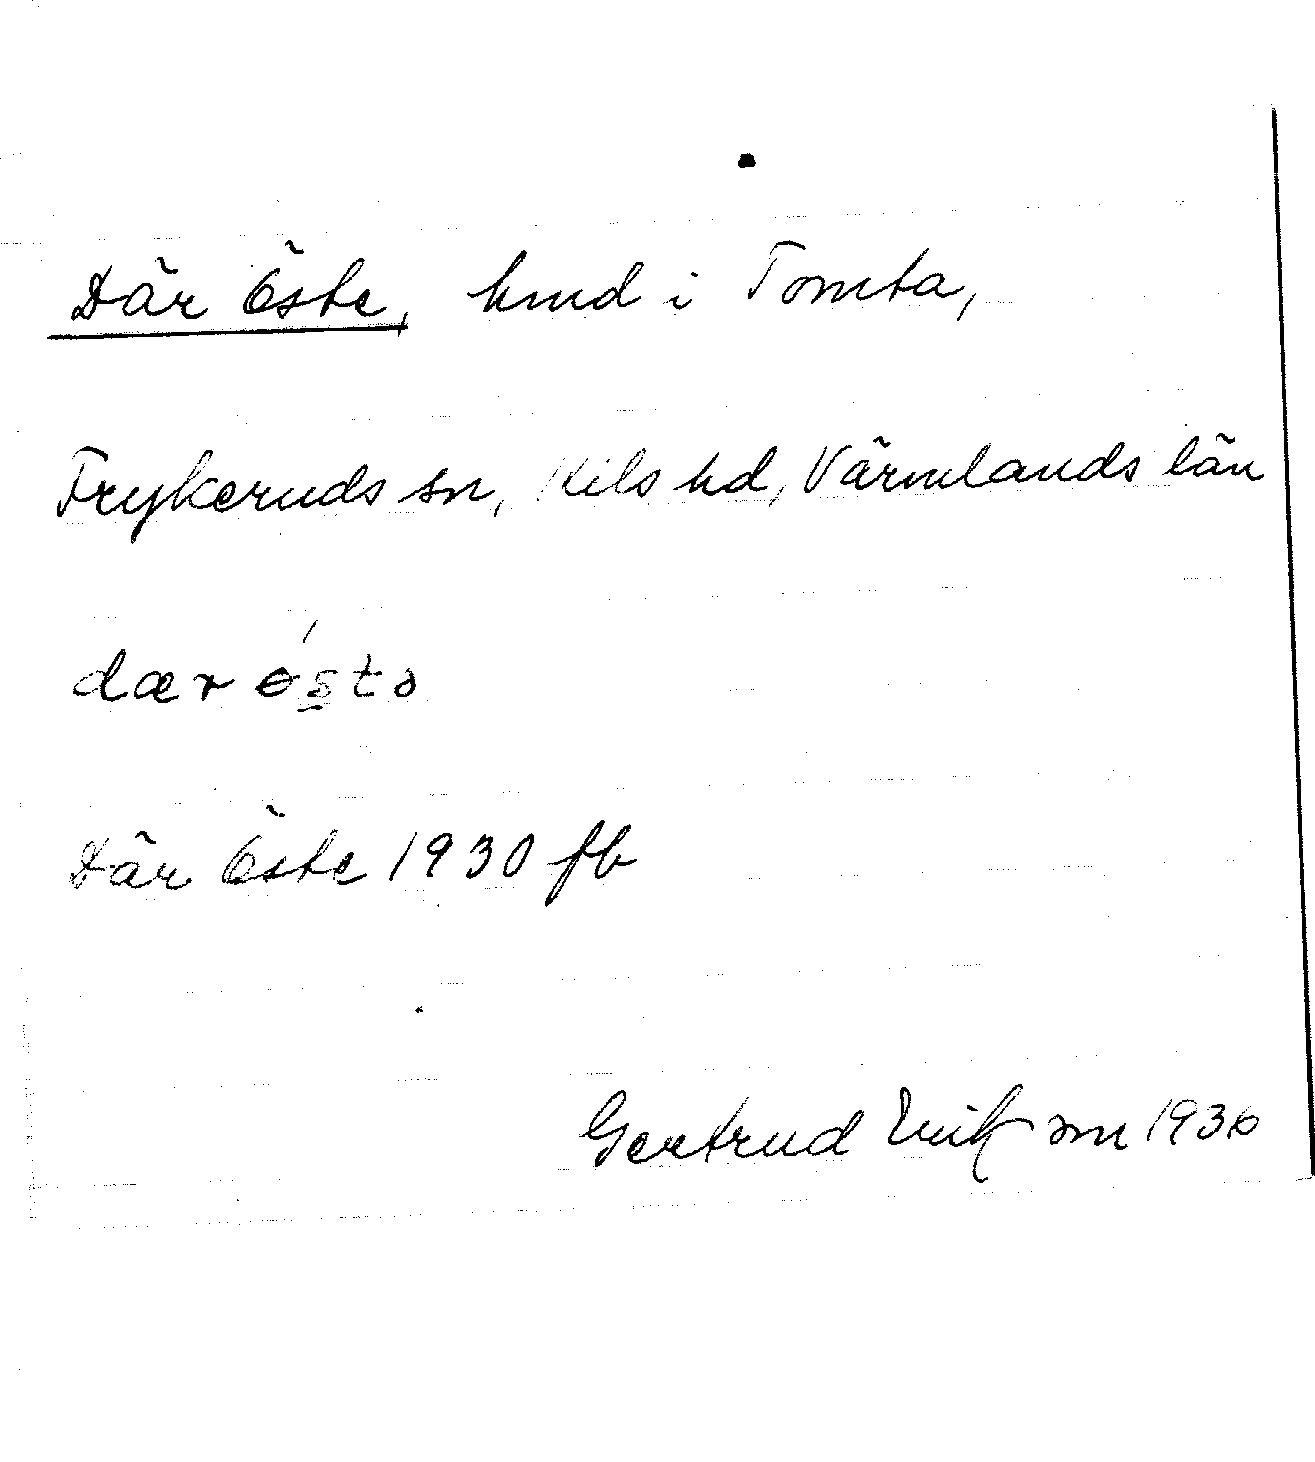 Där Öste, hmd i Tomta,
Frykeruds sn, Kils hd, Värmlands län
dær ɵ́stə
Där Öste 1930 fb
Gertrud 1936